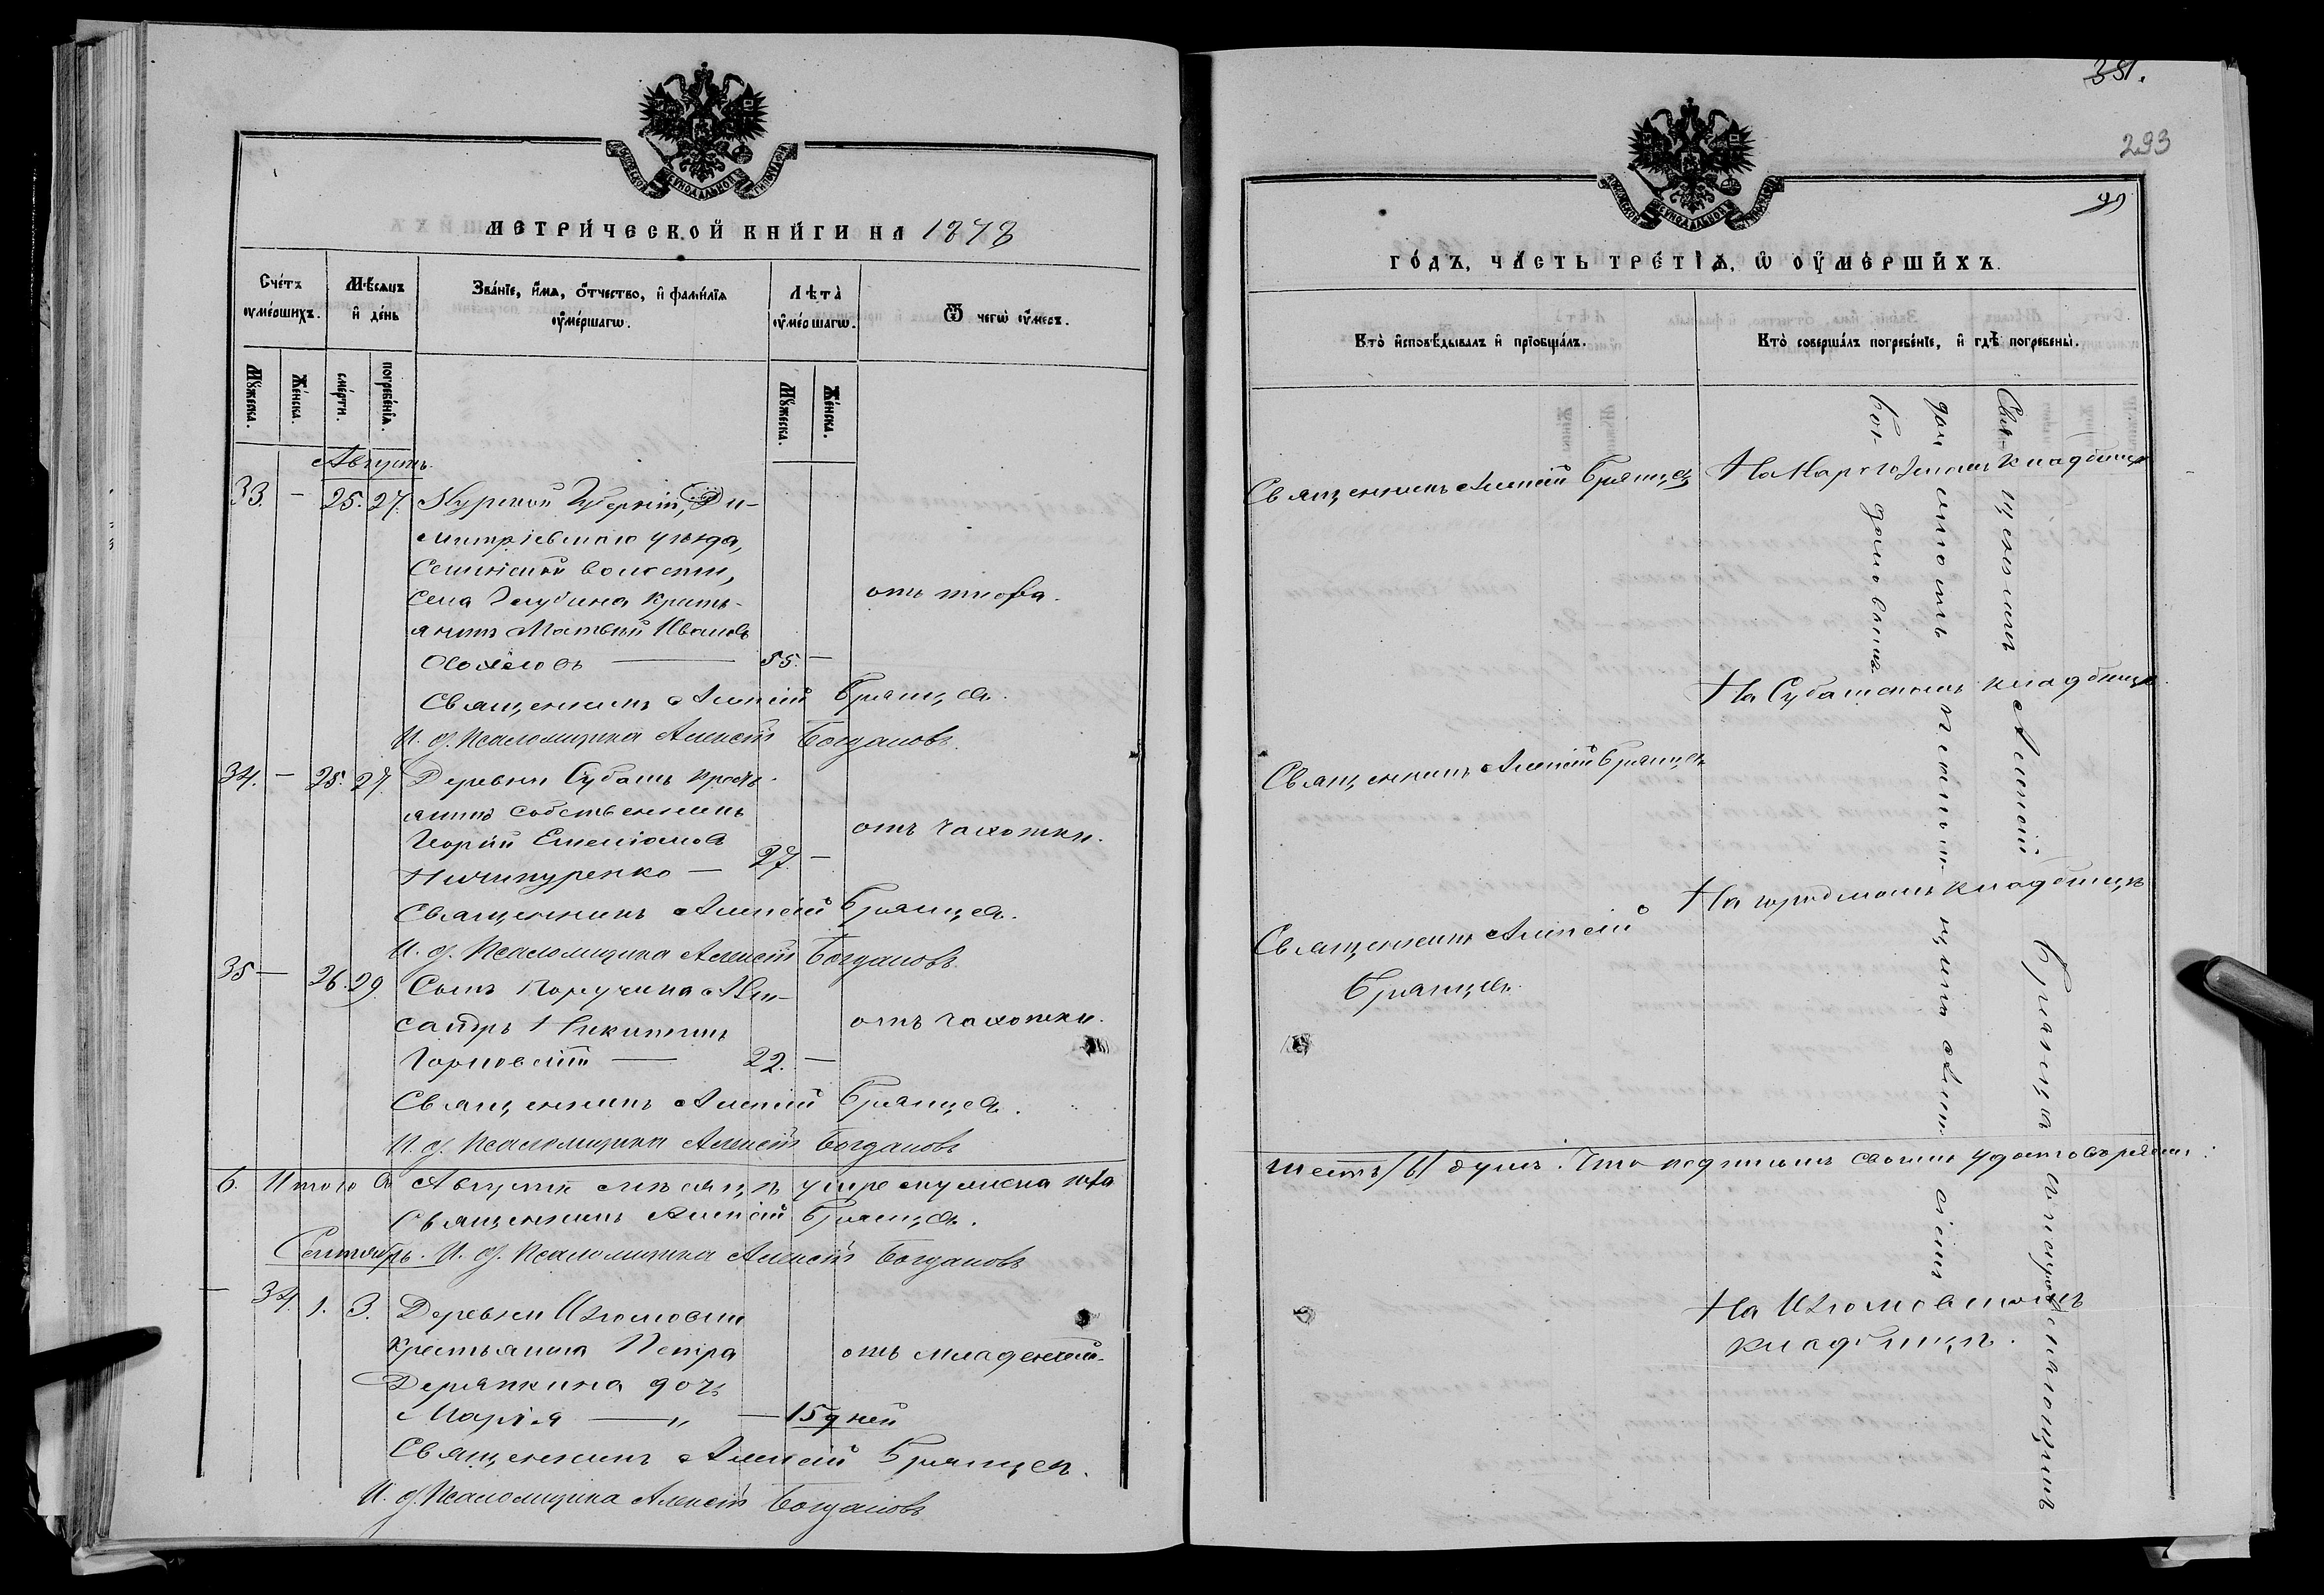 МЕТРИ́ЧЕСКОЙ КНИ́ГИ НА 1878
Сче́тъ оумершихъ.
Мѣ́сяцъ и де́нь
Зва́нїе, и́мя, ѻ́тчество, и фами́лїя оуме́ршагѡ.
Лѣта̀ оуме́ршагѡ.
Ѿ чегѡ̀ оу́меръ.
Му́жеска.
Же́нска.
сме́рти.
погребе́нїя.
Му́жеска.
Же́нска.
Августъ.
33. — 25. 27. Курской Губерніи, Ди-
митріевскаго уѣзда,
волости,
Села крестья-
янинъ Матвѣй Ивановъ
55. —
отъ тифа.
Священникъ Алексій Брянцевъ.
И. д. Псаломщика Алексѣй Богдановъ.
34. — 25. 27. Деревни Субашъ кресть-
янинъ собственникъ
Георгій Емеліановъ
Ничипуренко — 27. —
отъ чахотки.
Священникъ Алексій Брянцевъ.
И. д. Псаломщика Алексѣй Богдановъ.
35 — 26. 29. Сынъ Поручика Алек-
сандръ Никитинъ
22. —
отъ чахотки.
Священникъ Алексій Брянцевъ.
И. д. Псаломщика Алексѣй Богдановъ
6. Итого въ Августѣ мѣсяцѣ умре мужеска пола
Священникъ Алексій Брянцевъ.
Сентябрь. И. д. Псаломщика Алексѣй Богдановъ
— 34. 1. 3. Деревни Изюмовки
Крестьянина Петра
Дерянкина дочь
Марія — „ — 15 дней
отъ младенчес.
Священникъ Алексій Брянцевъ.
И. д. Псаломщика Алексѣй Богдановъ
351.
293
ГО́ДЪ, ЧА́СТЬ ТРЕ́ТЇѦ, Ѡ ОУМЕ́РШИХЪ.
Кто̀ исповѣ́дывалъ и прїобща́лъ.
Кто̀ соверша́лъ погребе́нїе, и гдѣ̀ погребены̀.
Священникъ Алексій Брянцевъ
кладбищѣ
На Субашскомъ кладбищѣ.
Священникъ Алексій Брянцевъ
На городскомъ кладбищѣ
Священникъ Алексій
Брянцевъ.
шесть /6/ душъ. Что подписомъ своимъ удостовѣряемъ:
На Изюмовскомъ
кладбищѣ.
Священникъ Алексій Брянцевъ съ исправляющимъ
должность Псаломщика Алек-
Богдановымъ.